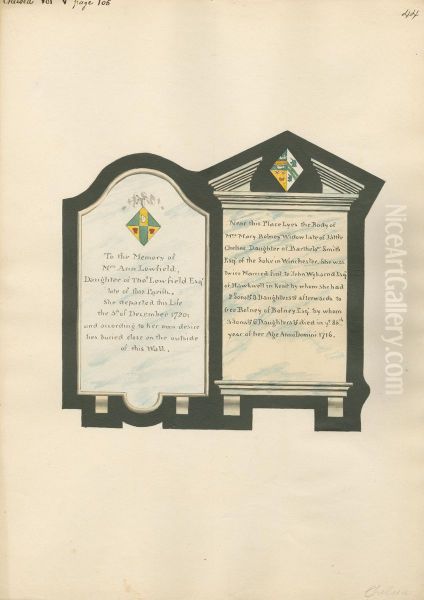 Chelsea Vol V page 106
44
To the Memory of
Mrs Ann Lowfield,
Daughter of Thos Lowfield Esqr
late of this Parish.
She departed this Life
the 5th of December 1720;
and according to her own desire
lies buried close on the outside
of this Wall.
Near this Place Lyes the Body of
Mrs Mary Bolney Widow Late of Little
Chelsea Daughter of Barthw Smith
Esqr of the Soke in Winchester, She was
twice Married first to John Wybarnd Esqr
of Hawkwell in Kent by whom she had
Sons & Daughters & afterwards to
Geo Bolney of Bolney Esqr by whom
3 Sons & 6 Daughters & died in ye 85th
year of her Age Anno Domini 1716.
NiceArtGallery.com
Chelsea